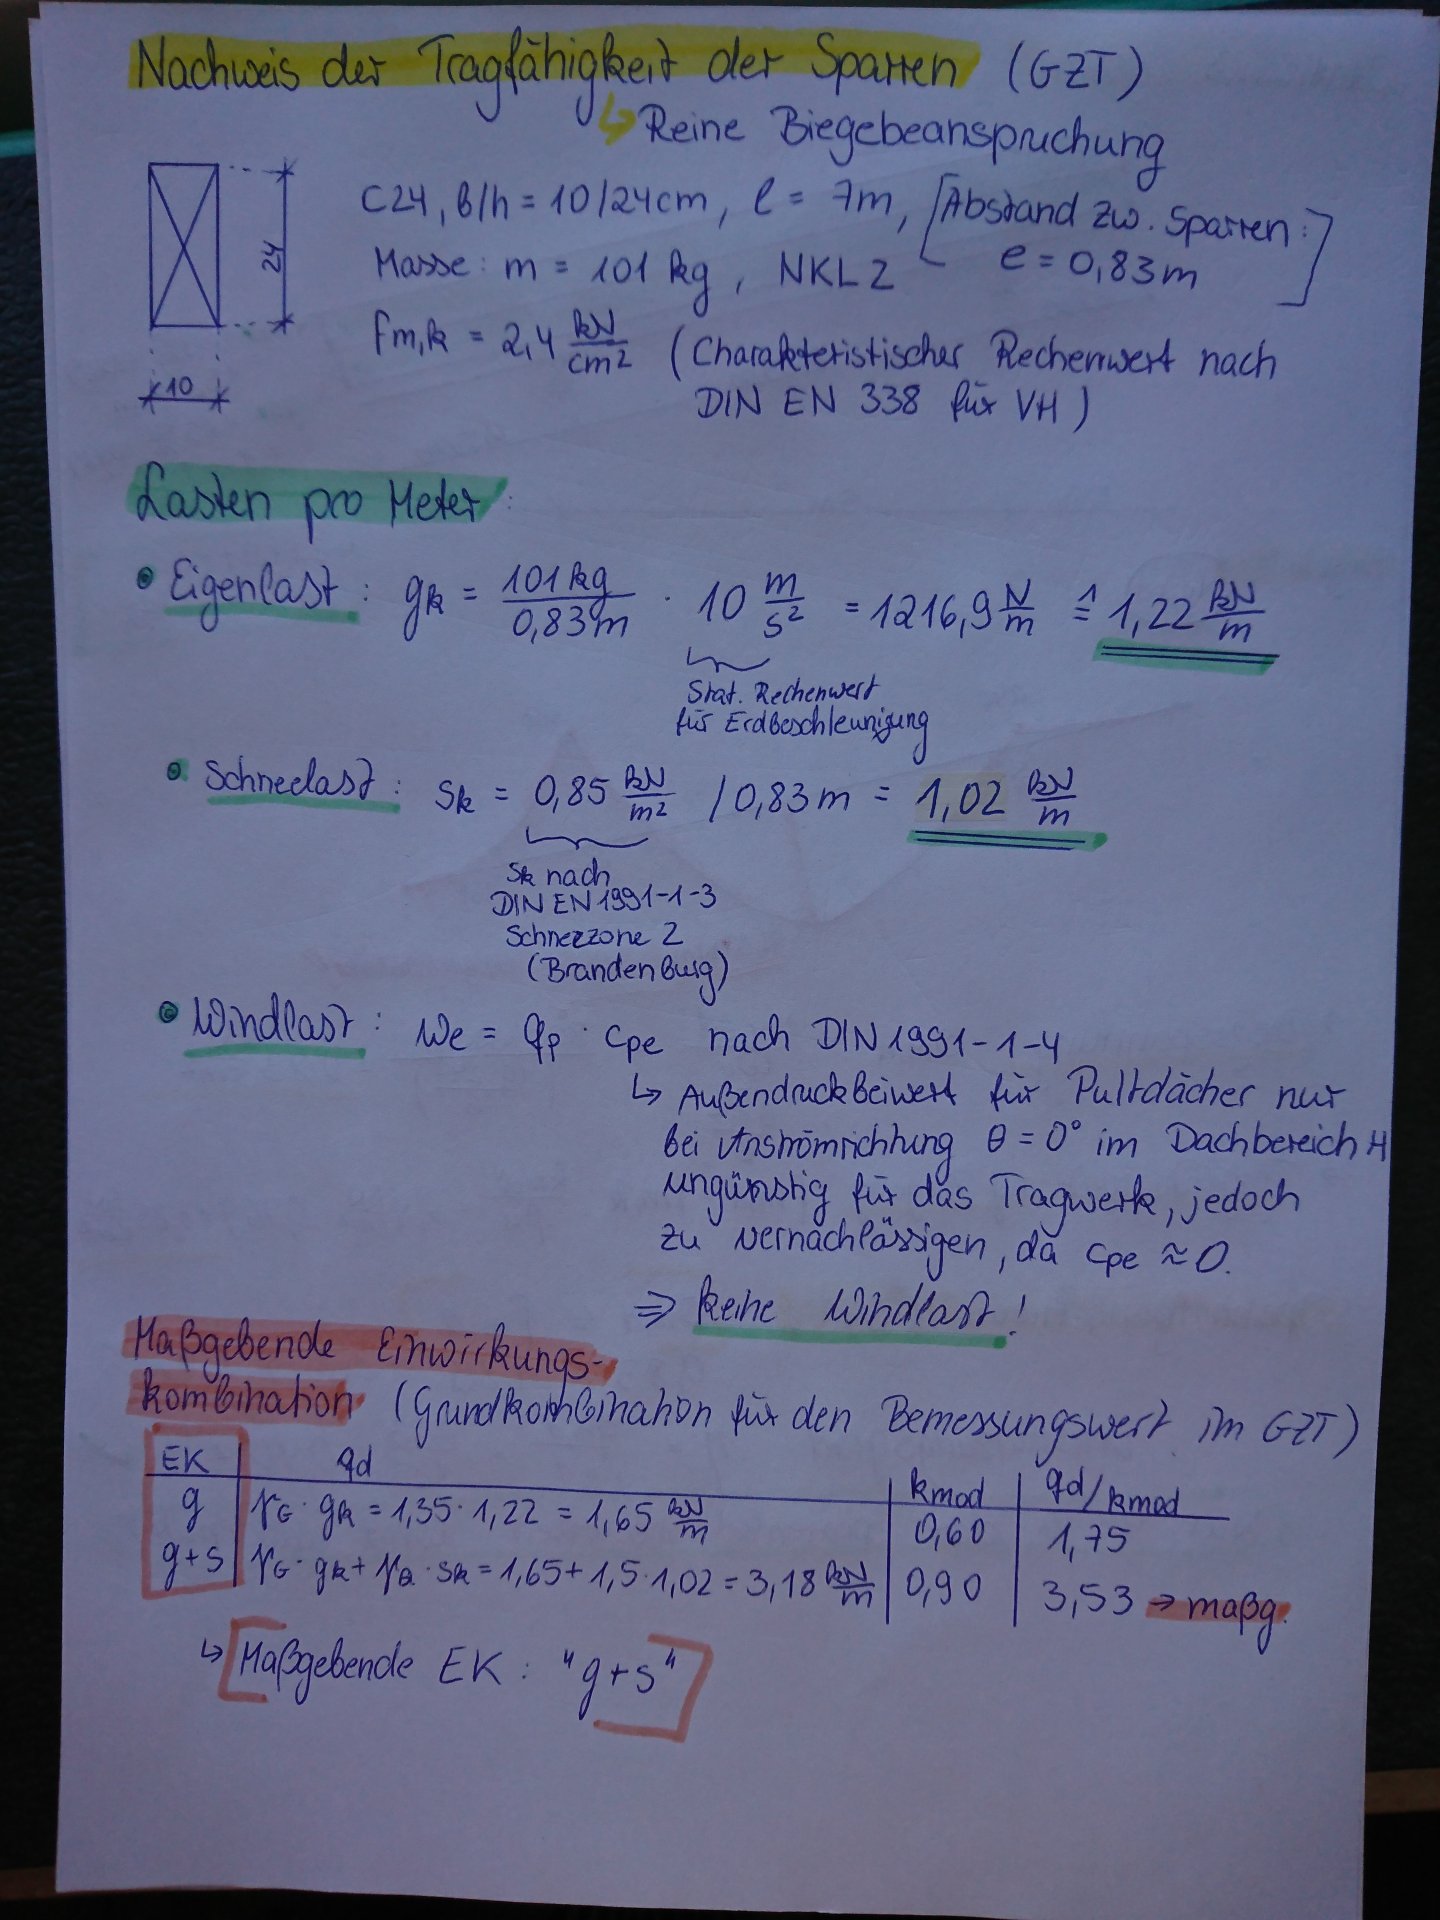 Nachweis der Tragfähigkeit der Sparren (GZT)
↳ Reine Biegebeanspruchung
C24, b/h = 10/24cm, l = 7m, [Abstand zw. Sparren:
Masse: m = 101 kg, NKL 2 e = 0,83m]
24
fm,k = 2,4 kN/cm² (Charakteristischer Rechenwert nach
DIN EN 338 für VH)
10
Lasten pro Meter:
• Eigenlast: gk = 101kg/0,83m · 10 m/s² = 1216,9 N/m ≙ 1,22 kN/m
Stat. Rechenwert
für Erdbeschleunigung
• Schneelast: sk = 0,85 kN/m² / 0,83m = 1,02 kN/m
Sk nach
DIN EN 1991-1-3
Schneezone 2
(Brandenburg)
• Windlast: we = qp · cpe nach DIN 1991-1-4
↳ Außendruckbeiwert für Pultdächer nur
bei Anströmrichtung θ = 0° im Dachbereich H
ungünstig für das Tragwerk, jedoch
zu vernachlässigen, da cpe ≈ 0.
⇒ keine Windlast!
Maßgebende Einwirkungs-
kombination (Grundkombination für den Bemessungswert im GZT)
EK qd kmod qd/kmod
g γG · gk = 1,35 · 1,22 = 1,65 kN/m 0,60 1,75
g+s γG · gk + γQ · sk = 1,65 + 1,5 · 1,02 = 3,18 kN/m 0,90 3,53 → maßg.
↳ [Maßgebende EK: "g+s"]